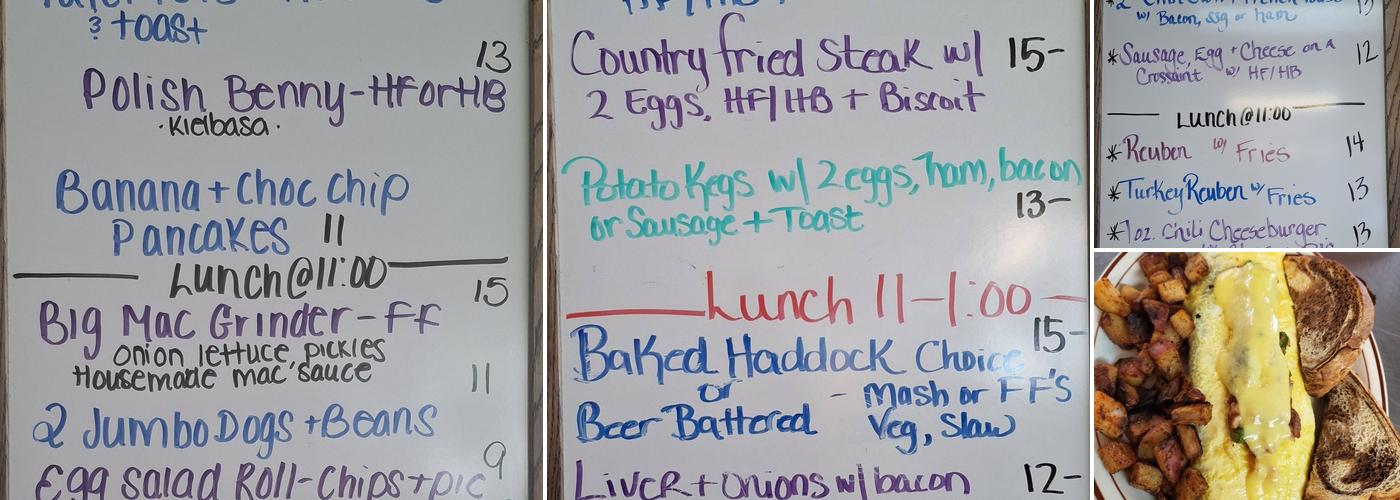 & toast
13
Polish Benny-HForHB
·Kielbasa·
Banana+Choc Chip
Pancakes 11
Lunch@11:00
15
Big Mac Grinder-FF
onion lettuce, pickles
Housemade mac sauce
11
2 Jumbo Dogs +Beans
9
Egg Salad Roll-Chips+pic
Country fried Steak w/ 15-
2 Eggs, HF/HB + Biscoit
Potato Kegs w/ 2eggs, ham, bacon
or Sausage + Toast 13-
Lunch 11-1:00
15-
Baked Haddock Choice
or - Mash or FF'S
Beer Battered Veg, Slaw
Liver+Onions w/ bacon 12-
w/ Bacon, ssg or ham
*Sausage, Egg + Cheese on a 12
Crossaint w/ HF/HB
Lunch@11:00
*Reuben w/ Fries 14
*Turkey Reuben w/ Fries 13
*7oz. Chili Cheeseburger 13